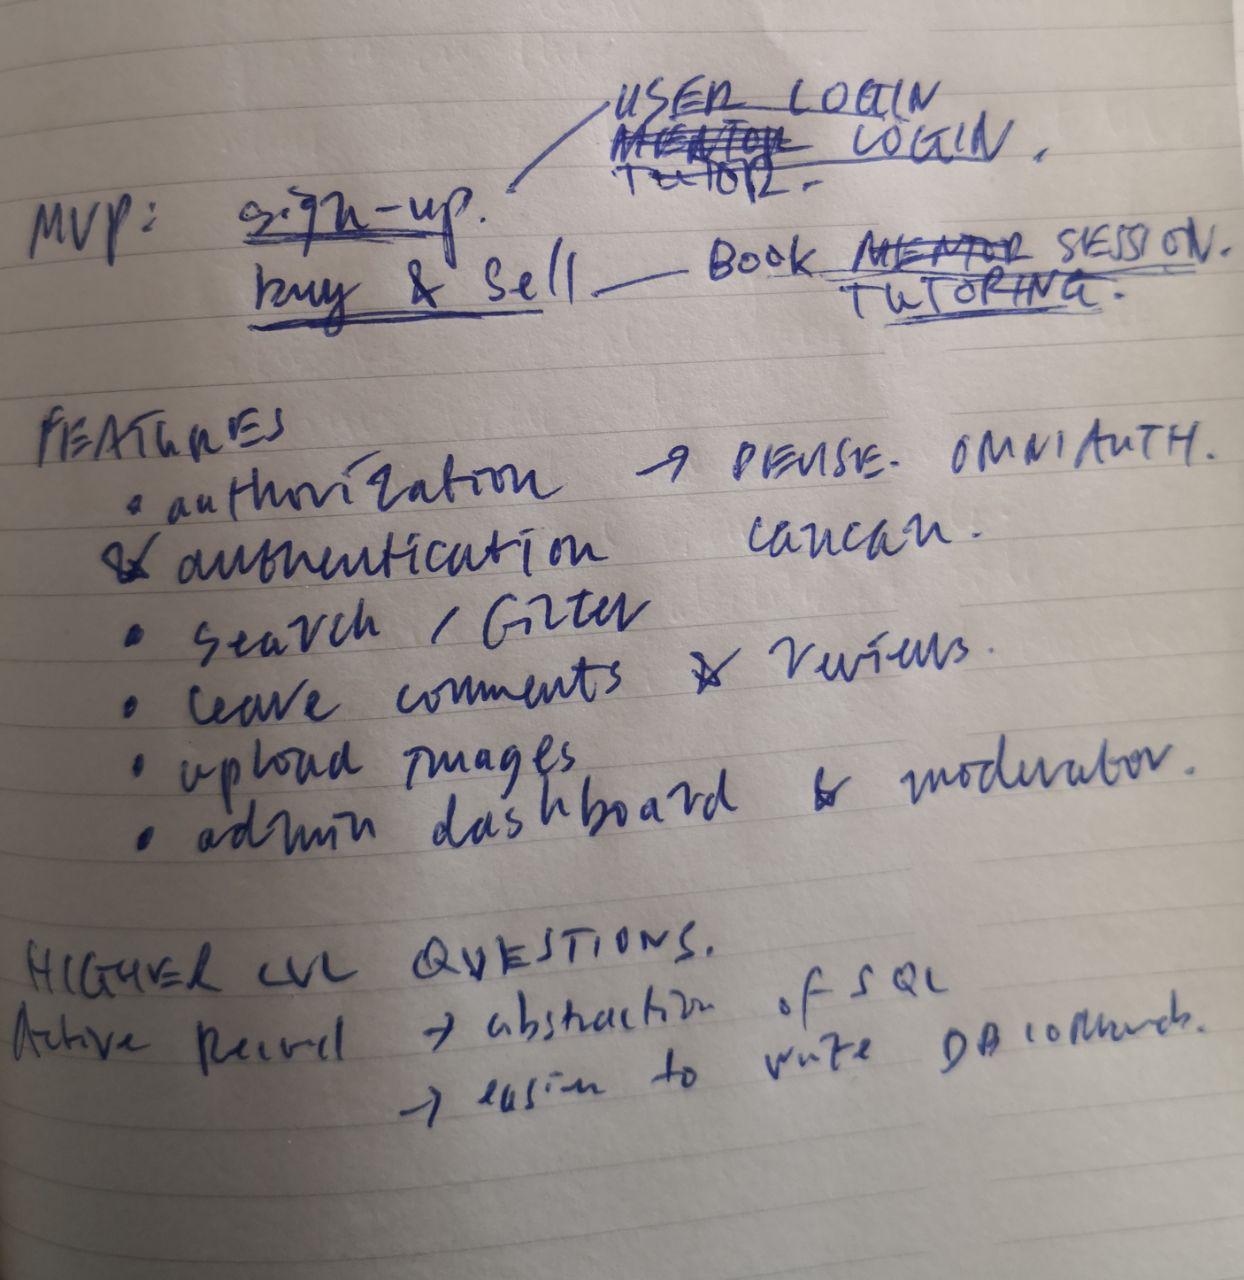 USER LOGIN
MENTOR LOGIN.
TUTOR.
MVP: sign-up.
buy & sell — BOOK MENTOR SESSION.
TUTORING.
FEATURES
• authorization → DEVISE. OMNIAUTH.
& authentication cancan.
• search / filter
• leave comments & reviews.
• upload images
• admin dashboard & moderator.
HIGHER LVL QUESTIONS.
Active Record → abstraction of SQL
→ easier to write DB commands.